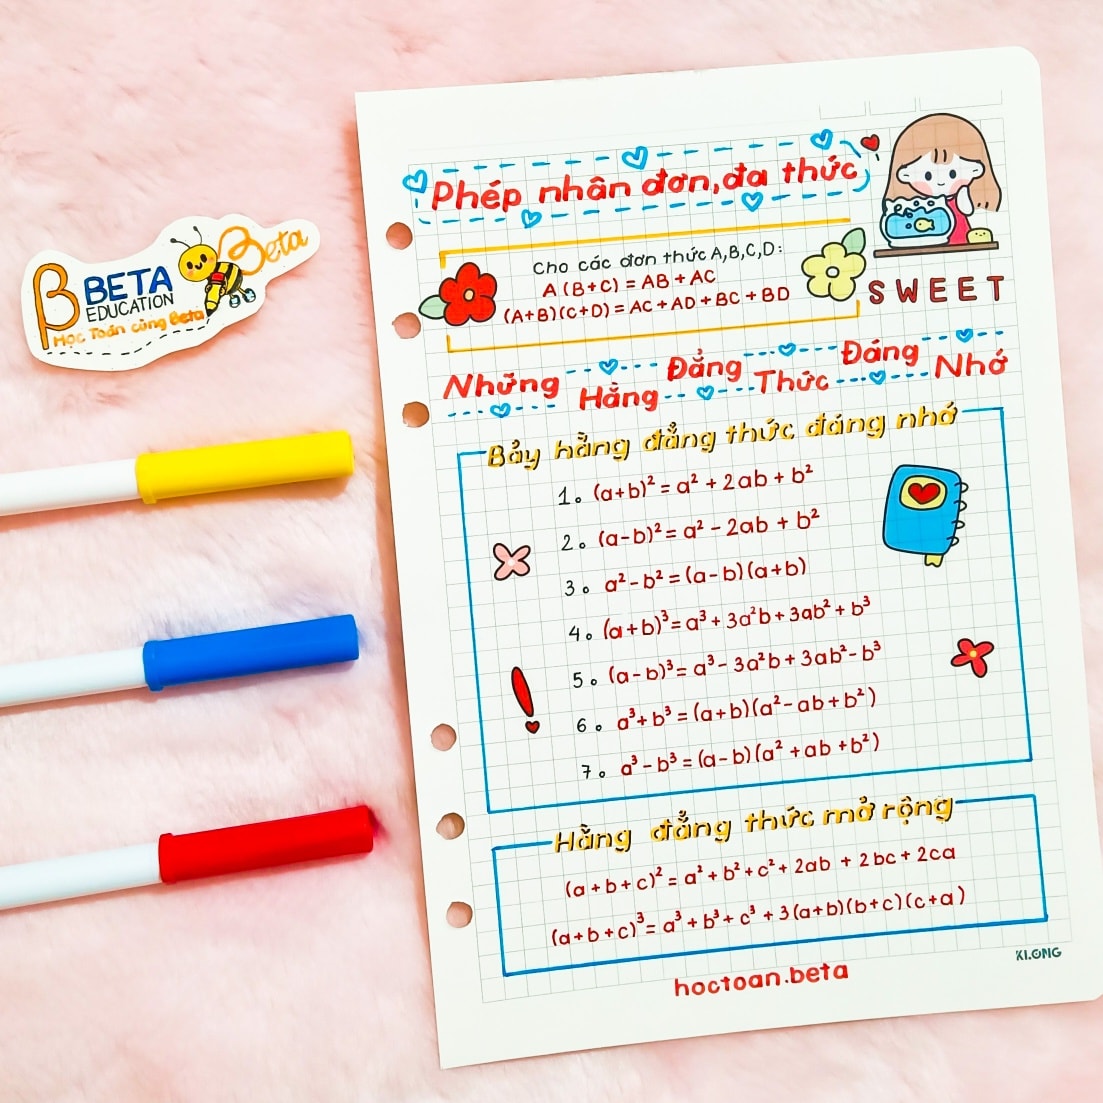 β BETA
EDUCATION
Học Toán cùng Beta
Beta
Phép nhân đơn, đa thức
Cho các đơn thức A,B,C,D:
A(B+C) = AB + AC
(A+B)(C+D) = AC + AD + BC + BD
SWEET
Những Hằng Đẳng Thức Đáng Nhớ
Bảy hằng đẳng thức đáng nhớ
1. (a+b)² = a² + 2ab + b²
2. (a-b)² = a² - 2ab + b²
3. a² - b² = (a-b)(a+b)
4. (a+b)³ = a³ + 3a²b + 3ab² + b³
5. (a-b)³ = a³ - 3a²b + 3ab² - b³
6. a³ + b³ = (a+b)(a² - ab + b²)
7. a³ - b³ = (a-b)(a² + ab + b²)
Hằng đẳng thức mở rộng
(a+b+c)² = a² + b² + c² + 2ab + 2bc + 2ca
(a+b+c)³ = a³ + b³ + c³ + 3(a+b)(b+c)(c+a)
KLONG
hoctoan.beta